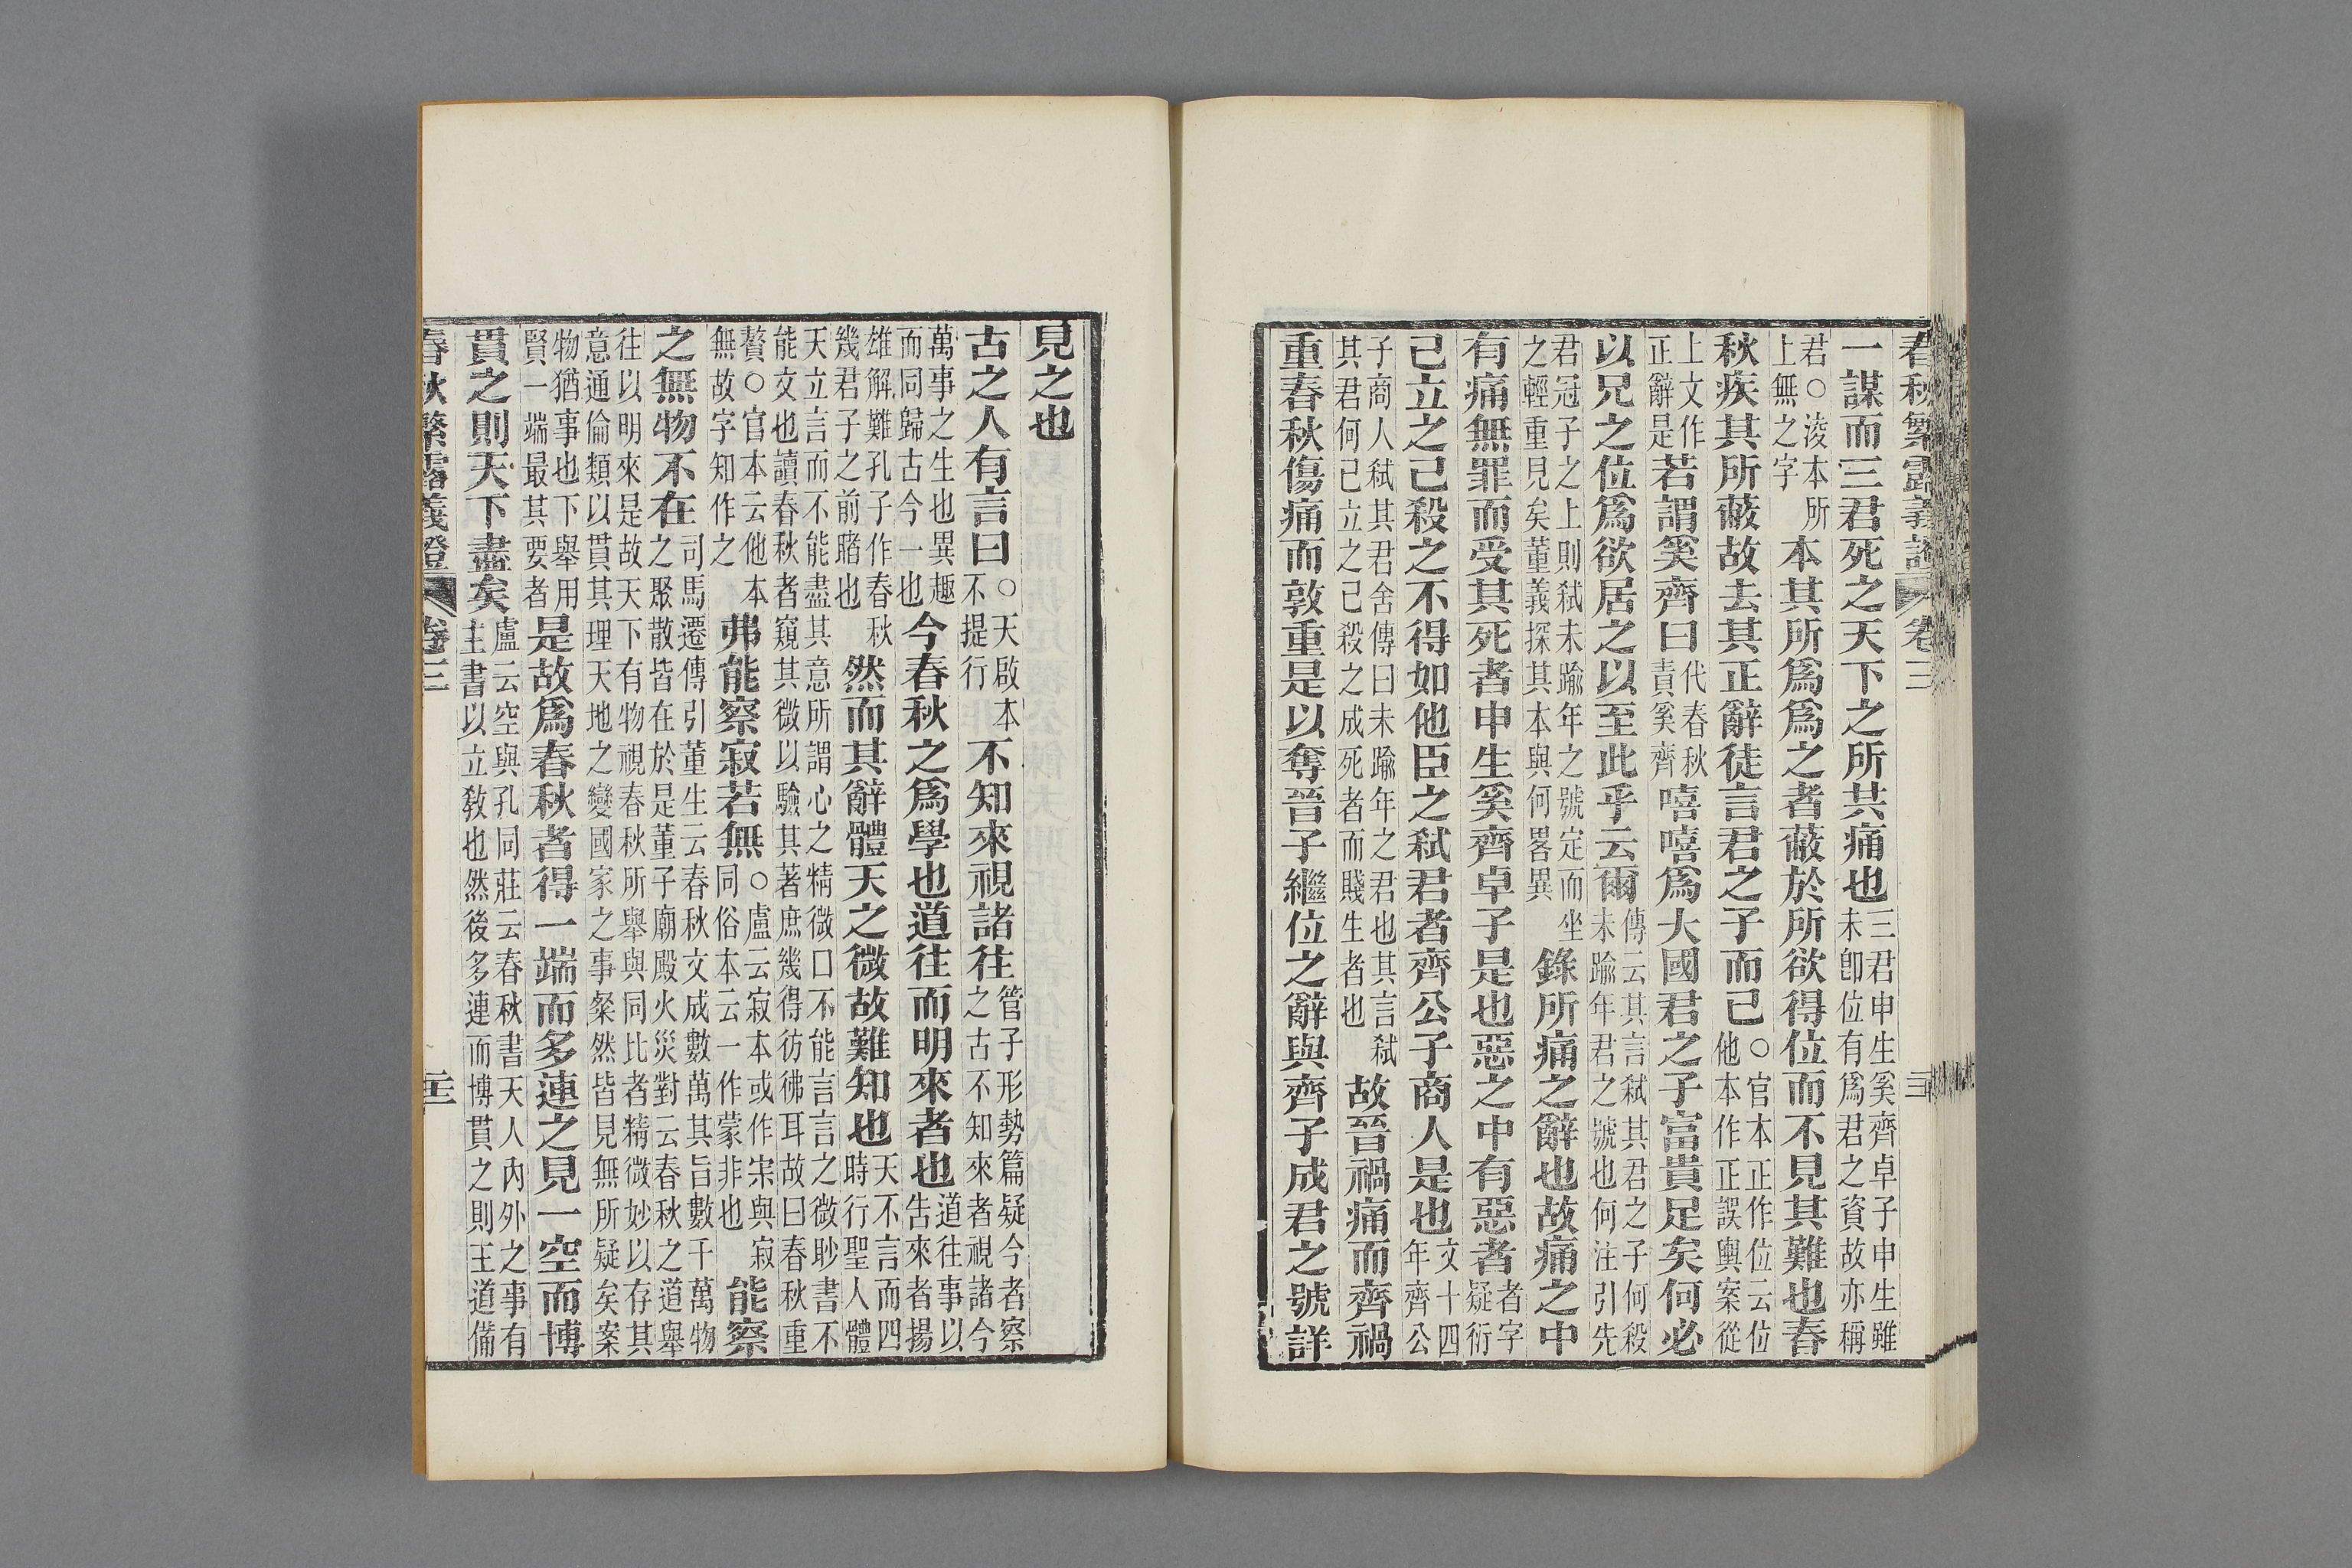 春秋繁露義證 卷三
一謀而三君死之天下之所共痛也三君申生奚齊卓子申生雖未卽位有爲君之資故亦稱
君○淩本所上無之字本其所爲爲之者蔽於所欲得位而不見其難也春
秋疾其所蔽故去其正辭徒言君之子而已○官本正作位云位他本作正誤輿案從
上文作正辭是若謂奚齊曰代春秋責奚齊嘻嘻爲大國君之子富貴足矣何必
以兄之位爲欲居之以至此乎云爾傳云其言弒其君之子何殺未踰年君之號也何注引先
君冠子之上則弒未踰年之號定而坐之輕重見矣董義探其本與何畧異錄所痛之辭也故痛之中
有痛無罪而受其死者申生奚齊卓子是也惡之中有惡者者字疑衍
己立之己殺之不得如他臣之弒君者齊公子商人是也文十四年齊公
子商人弒其君舍傳曰未踰年之君也其言弒其君何己立之己殺之成死者而賤生者也故晉禍痛而齊禍
重春秋傷痛而敦重是以奪晉子繼位之辭與齊子成君之號詳
見之也
古之人有言曰○天啟本不提行不知來視諸往管子形勢篇疑今者察之古不知來者視諸今
萬事之生也異趣而同歸古今一也今春秋之爲學也道往而明來者也道往事以告來者揚
雄解難孔子作春秋幾君子之前睹也然而其辭體天之微故難知也天不言而四時行聖人體
天立言而不能盡其意所謂心之精微口不能言言之微眇書不能文也讀春秋者窺其微以驗其著庶幾得彷彿耳故曰春秋重
贅○官本云他本無故字知作之弗能察寂若無○盧云寂本或作宗與寂同俗本云一作蒙非也能察
之無物不在司馬遷傳引董生云春秋文成數萬其旨數千萬物之聚散皆在於是董子廟殿火災對云春秋之道舉
往以明來是故天下有物視春秋所舉與同比者精微妙以存其意通倫類以貫其理天地之變國家之事粲然皆見無所疑矣案
物猶事也下舉用賢一端最其要者是故爲春秋者得一端而多連之見一空而博
貫之則天下盡矣盧云空與孔同莊云春秋書天人內外之事有主書以立教也然後多連而博貫之則王道備
春秋繁露義證 卷三